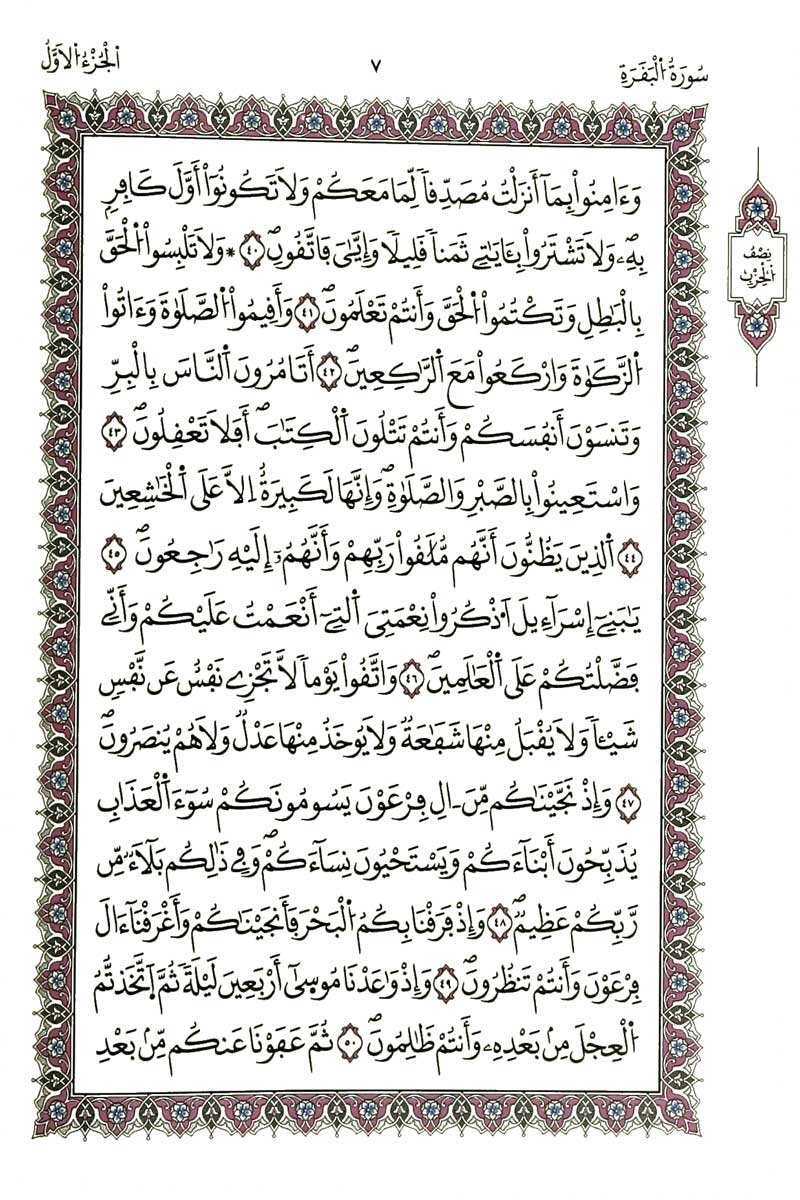 سُورَةُ الْبَقَرَةِ
٧
الْجُزْءُ الْأَوَّلُ
وَءَامِنُواْ بِمَآ أَنزَلْتُ مُصَدِّقاٗ لِّمَا مَعَكُمْ وَلَا تَكُونُوٓاْ أَوَّلَ كَافِرِۢ
بِهِۦ وَلَا تَشْتَرُواْ بِـَٔايَٰتِے ثَمَناٗ قَلِيلاٗ وَإِيَّٰيَ فَاتَّقُونِۖ ٤٠ * وَلَا تَلْبِسُواْ اُ۬لْحَقَّ
بِالْبَٰطِلِ وَتَكْتُمُواْ اُ۬لْحَقَّ وَأَنتُمْ تَعْلَمُونَۖ ٤١ وَأَقِيمُواْ اُ۬لصَّلَوٰةَ وَءَاتُواْ
اُ۬لزَّكَوٰةَ وَارْكَعُواْ مَعَ اَ۬لرَّٰكِعِينَۖ ٤٢ أَتَامُرُونَ اَ۬لنَّاسَ بِالْبِرِّ
وَتَنسَوْنَ أَنفُسَكُمْ وَأَنتُمْ تَتْلُونَ اَ۬لْكِتَٰبَۖ أَفَلَا تَعْقِلُونَۖ ٤٣
وَاسْتَعِينُواْ بِالصَّبْرِ وَالصَّلَوٰةِۖ وَإِنَّهَا لَكَبِيرَةٌ اِلَّا عَلَى اَ۬لْخَٰشِعِينَ
٤٤ اَ۬لذِينَ يَظُنُّونَ أَنَّهُم مُّلَٰقُواْ رَبِّهِمْ وَأَنَّهُمُۥٓ إِلَيْهِ رَٰجِعُونَۖ ٤٥
يَٰبَنِےٓ إِسْرَآءِيلَ اَ۟ذْكُرُواْ نِعْمَتِيَ اَ۬لتِےٓ أَنْعَمْتُ عَلَيْكُمْ وَأَنِّے
فَضَّلْتُكُمْ عَلَى اَ۬لْعَٰلَمِينَۖ ٤٦ وَاتَّقُواْ يَوْماٗ لَّا تَجْزِے نَفْسٌ عَن نَّفْسٖ
شَيْـٔاٗ وَلَا يُقْبَلُ مِنْهَا شَفَٰعَةٞ وَلَا يُوخَذُ مِنْهَا عَدْلٞ وَلَا هُمْ يُنصَرُونَۖ
٤٧ وَإِذْ نَجَّيْنَٰكُم مِّنَ اٰلِ فِرْعَوْنَ يَسُومُونَكُمْ سُوٓءَ اَ۬لْعَذَابِ
يُذَبِّحُونَ أَبْنَآءَكُمْ وَيَسْتَحْيُونَ نِسَآءَكُمْۖ وَفِے ذَٰلِكُم بَلَآءٞ مِّن
رَّبِّكُمْ عَظِيمٞۖ ٤٨ وَإِذْ فَرَقْنَا بِكُمُ اُ۬لْبَحْرَ فَأَنجَيْنَٰكُمْ وَأَغْرَقْنَآ ءَالَ
فِرْعَوْنَ وَأَنتُمْ تَنظُرُونَۖ ٤٩ وَإِذْ وَٰعَدْنَا مُوس۪يٰٓ أَرْبَعِينَ لَيْلَةٗ ثُمَّ اَ۪تَّخَذتُّمُ
اُ۬لْعِجْلَ مِنۢ بَعْدِهِۦ وَأَنتُمْ ظَٰلِمُونَۖ ٥٠ ثُمَّ عَفَوْنَا عَنكُم مِّنۢ بَعْدِ
نِصْفُ
الْحِزْبِ